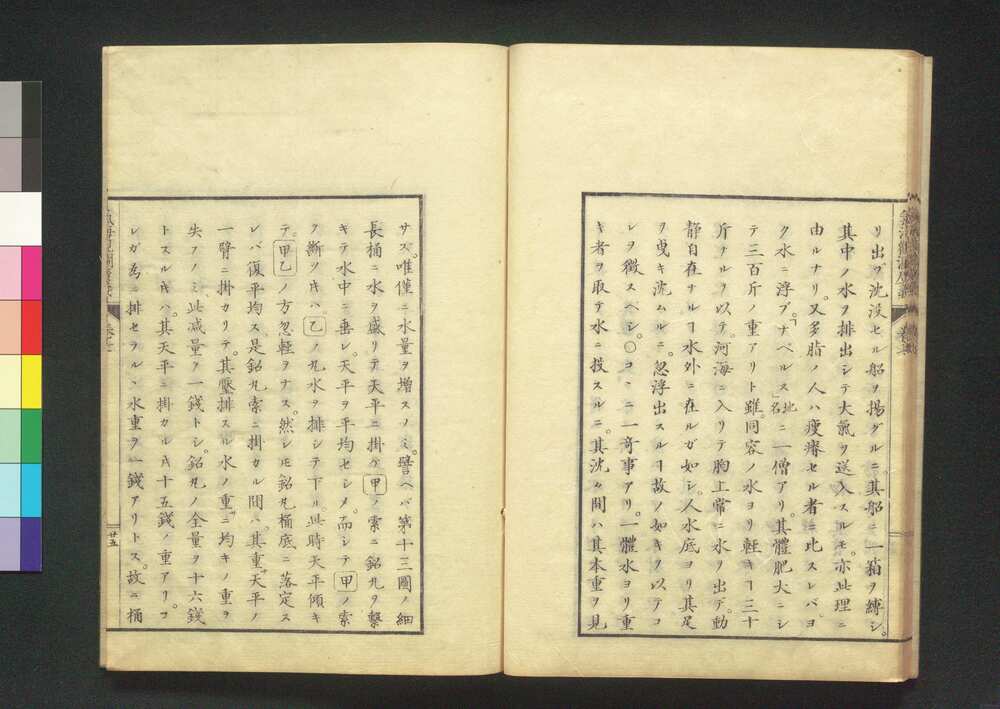 リ出ヅ沈没セル船ヲ揚グルニ。其船ニ一箱ヲ縛シ。
其中ノ水ヲ排出シテ大氣ヲ送入スルモ。亦此理ニ
由ルナリ。又多脂ノ人ハ瘦瘠セル者ニ比スレバ。ヨ
ク水ニ浮ブ。「ナペルス」地名ニ一僧アリ。其體肥大ニシ
テ三百斤ノ重アリト雖。同容ノ水ヨリ輕キヿ三十
斤ナルヲ以テ。河海ニ入リテ胸上常ニ水ヲ出デ。動
靜自在ナルヿ水外ニ在ルガ如シ。人水底ヨリ其足
ヲ曳キ沈ムルニ。忽浮出スルヿ故ノ如キヲ以テコ
レヲ徴スベシ。〇コヽニ一奇事アリ。一體水ヨリ重
キ者ヲ取テ水ニ投スルニ。其沈ム間ハ其本重ヲ見
サズ。唯僅ニ水量ヲ増スノミ。譬ヘバ第十三圖ノ細
長桶ニ水ヲ盛リテ天平ニ掛ケ。甲ノ索ニ鉛丸ヲ繋
キテ水中ニ垂レ。天平ヲ平均セシメ。而シテ甲ノ索
ヲ斷ツ𪜈ハ。乙ノ丸水ヲ排シテ下ル。此時天平傾キ
テ。甲乙ノ方忽輕ヲナス。然シ𪜈鉛丸桶底ニ落定ス
レバ復平均ス。是鉛丸索ニ掛カル間ハ。其重天平ノ
一臂ニ掛カリテ。其壓排スル水ノ重ニ均キノ重ヲ
失フノミ此減量ヲ一錢トシ。鉛丸ノ全量ヲ十六錢
トスル𪜈ハ。其天平ニ掛カル𪜈十五錢ノ重アリ。コ
レガ為ニ排セラルヽ水重ヲ一錢アリトス。故ニ桶
廿五